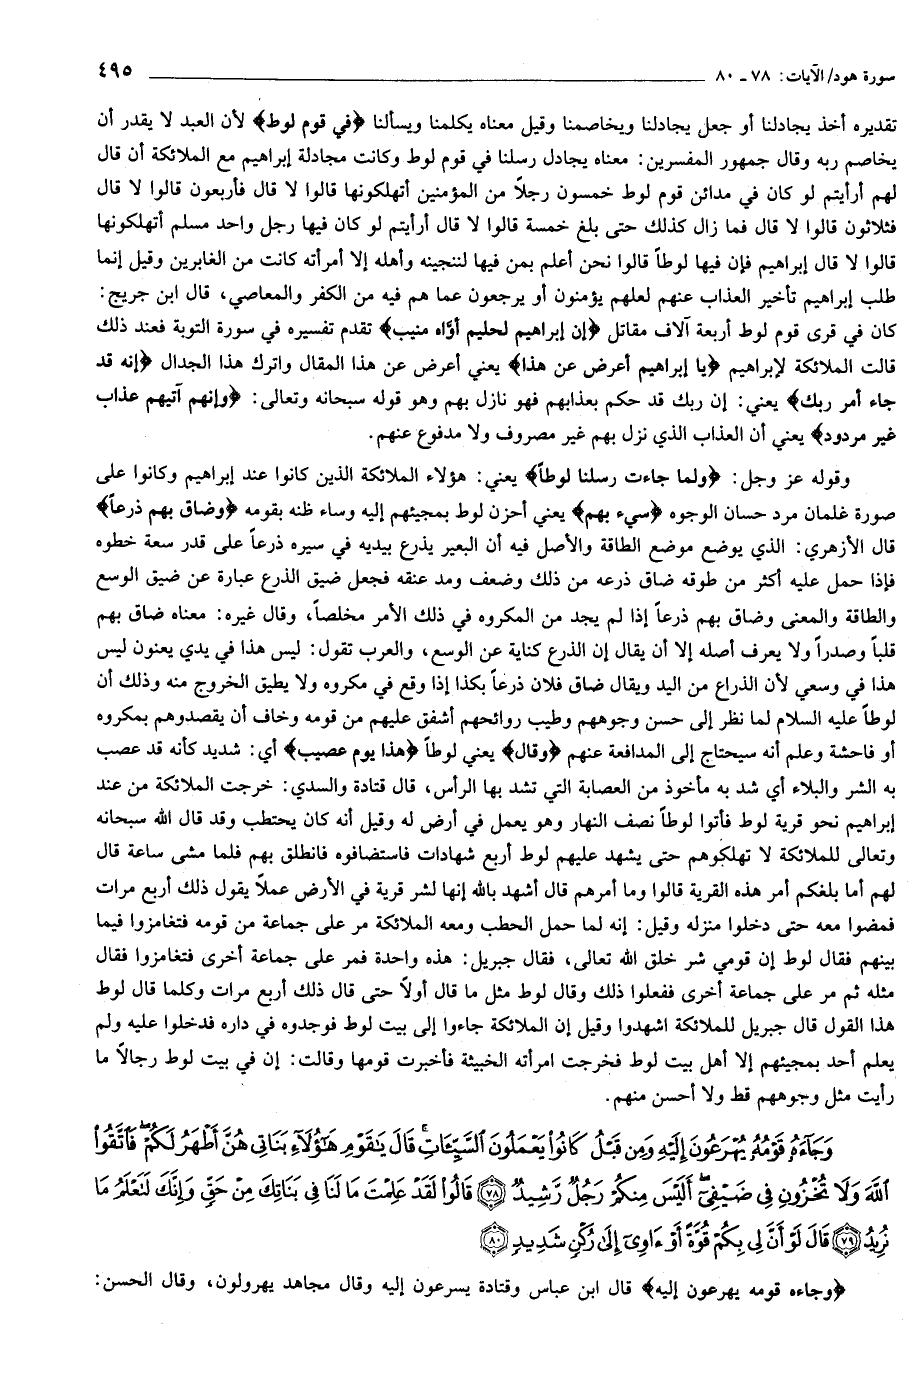 سورة هود/ الآيات: ٧٨ ـ ٨٠ ٤٩٥
تقديره أخذ يجادلنا أو جعل يجادلنا ويخاصمنا وقيل معناه يكلمنا ويسألنا ﴿في قوم لوط﴾ لأن العبد لا يقدر أن
يخاصم ربه وقال جمهور المفسرين: معناه يجادل رسلنا في قوم لوط وكانت مجادلة إبراهيم مع الملائكة أن قال
لهم أرأيتم لو كان في مدائن قوم لوط خمسون رجلاً من المؤمنين أتهلكونها قالوا لا قال فأربعون قالوا لا قال
فثلاثون قالوا لا قال فما زال كذلك حتى بلغ خمسة قالوا لا قال أرأيتم لو كان فيها رجل واحد مسلم أتهلكونها
قالوا لا قال إبراهيم فإن فيها لوطاً قالوا نحن أعلم بمن فيها لننجينه وأهله إلا أمرأته كانت من الغابرين وقيل إنما
طلب إبراهيم تأخير العذاب عنهم لعلهم يؤمنون أو يرجعون عما هم فيه من الكفر والمعاصي، قال ابن جريج:
كان في قرى قوم لوط أربعة آلاف مقاتل ﴿إن إبراهيم لحليم أوّاه منيب﴾ تقدم تفسيره في سورة التوبة فعند ذلك
قالت الملائكة لإبراهيم ﴿يا إبراهيم أعرض عن هذا﴾ يعني أعرض عن هذا المقال واترك هذا الجدال ﴿إنه قد
جاء أمر ربك﴾ يعني: إن ربك قد حكم بعذابهم فهو نازل بهم وهو قوله سبحانه وتعالى: ﴿وإنهم آتيهم عذاب
غير مردود﴾ يعني أن العذاب الذي نزل بهم غير مصروف ولا مدفوع عنهم.
وقوله عز وجل: ﴿ولما جاءت رسلنا لوطاً﴾ يعني: هؤلاء الملائكة الذين كانوا عند إبراهيم وكانوا على
صورة غلمان مرد حسان الوجوه ﴿سيء بهم﴾ يعني أحزن لوط بمجيئهم إليه وساء ظنه بقومه ﴿وضاق بهم ذرعاً﴾
قال الأزهري: الذي يوضع موضع الطاقة والأصل فيه أن البعير يذرع بيديه في سيره ذرعاً على قدر سعة خطوه
فإذا حمل عليه أكثر من طوقه ضاق ذرعه من ذلك وضعف ومد عنقه فجعل ضيق الذرع عبارة عن ضيق الوسع
والطاقة والمعنى وضاق بهم ذرعاً إذا لم يجد من المكروه في ذلك الأمر مخلصاً، وقال غيره: معناه ضاق بهم
قلباً وصدراً ولا يعرف أصله إلا أن يقال إن الذرع كناية عن الوسع، والعرب تقول: ليس هذا في يدي يعنون ليس
هذا في وسعي لأن الذراع من اليد ويقال ضاق فلان ذرعاً بكذا إذا وقع في مكروه ولا يطيق الخروج منه وذلك أن
لوطاً عليه السلام لما نظر إلى حسن وجوههم وطيب روائحهم أشفق عليهم من قومه وخاف أن يقصدوهم بمكروه
أو فاحشة وعلم أنه سيحتاج إلى المدافعة عنهم ﴿وقال﴾ يعني لوطاً ﴿هذا يوم عصيب﴾ أي: شديد كأنه قد عصب
به الشر والبلاء أي شد به مأخوذ من العصابة التي تشد بها الرأس، قال قتادة والسدي: خرجت الملائكة من عند
إبراهيم نحو قرية لوط فأتوا لوطاً نصف النهار وهو يعمل في أرض له وقيل أنه كان يحتطب وقد قال الله سبحانه
وتعالى للملائكة لا تهلكوهم حتى يشهد عليهم لوط أربع شهادات فاستضافوه فانطلق بهم فلما مشى ساعة قال
لهم أما بلغكم أمر هذه القرية قالوا وما أمرهم قال أشهد بالله إنها لشر قرية في الأرض عملاً يقول ذلك أربع مرات
فمضوا معه حتى دخلوا منزله وقيل: إنه لما حمل الحطب ومعه الملائكة مر على جماعة من قومه فتغامزوا فيما
بينهم فقال لوط إن قومي شر خلق الله تعالى، فقال جبريل: هذه واحدة فمر على جماعة أخرى فتغامزوا فقال
مثله ثم مر على جماعة أخرى ففعلوا ذلك وقال لوط مثل ما قال أولاً حتى قال ذلك أربع مرات وكلما قال لوط
هذا القول قال جبريل للملائكة اشهدوا وقيل إن الملائكة جاءوا إلى بيت لوط فوجدوه في داره فدخلوا عليه ولم
يعلم أحد بمجيئهم إلا أهل بيت لوط فخرجت امرأته الخبيثة فأخبرت قومها وقالت: إن في بيت لوط رجالاً ما
رأيت مثل وجوههم قط ولا أحسن منهم.
وَجَآءَهُۥ قَوْمُهُۥ يُهْرَعُونَ إِلَيْهِ وَمِن قَبْلُ كَانُوا۟ يَعْمَلُونَ ٱلسَّيِّـَٔاتِ ۚ قَالَ يَٰقَوْمِ هَٰٓؤُلَآءِ بَنَاتِى هُنَّ أَطْهَرُ لَكُمْ ۖ فَٱتَّقُوا۟
ٱللَّهَ وَلَا تُخْزُونِ فِى ضَيْفِىٓ ۖ أَلَيْسَ مِنكُمْ رَجُلٌ رَّشِيدٌ ﴿٧٨﴾ قَالُوا۟ لَقَدْ عَلِمْتَ مَا لَنَا فِى بَنَاتِكَ مِنْ حَقٍّ وَإِنَّكَ لَتَعْلَمُ مَا
نُرِيدُ ﴿٧٩﴾ قَالَ لَوْ أَنَّ لِى بِكُمْ قُوَّةً أَوْ ءَاوِىٓ إِلَىٰ رُكْنٍ شَدِيدٍ ﴿٨٠﴾
﴿وجاءه قومه يهرعون إليه﴾ قال ابن عباس وقتادة يسرعون إليه وقال مجاهد يهرولون، وقال الحسن: